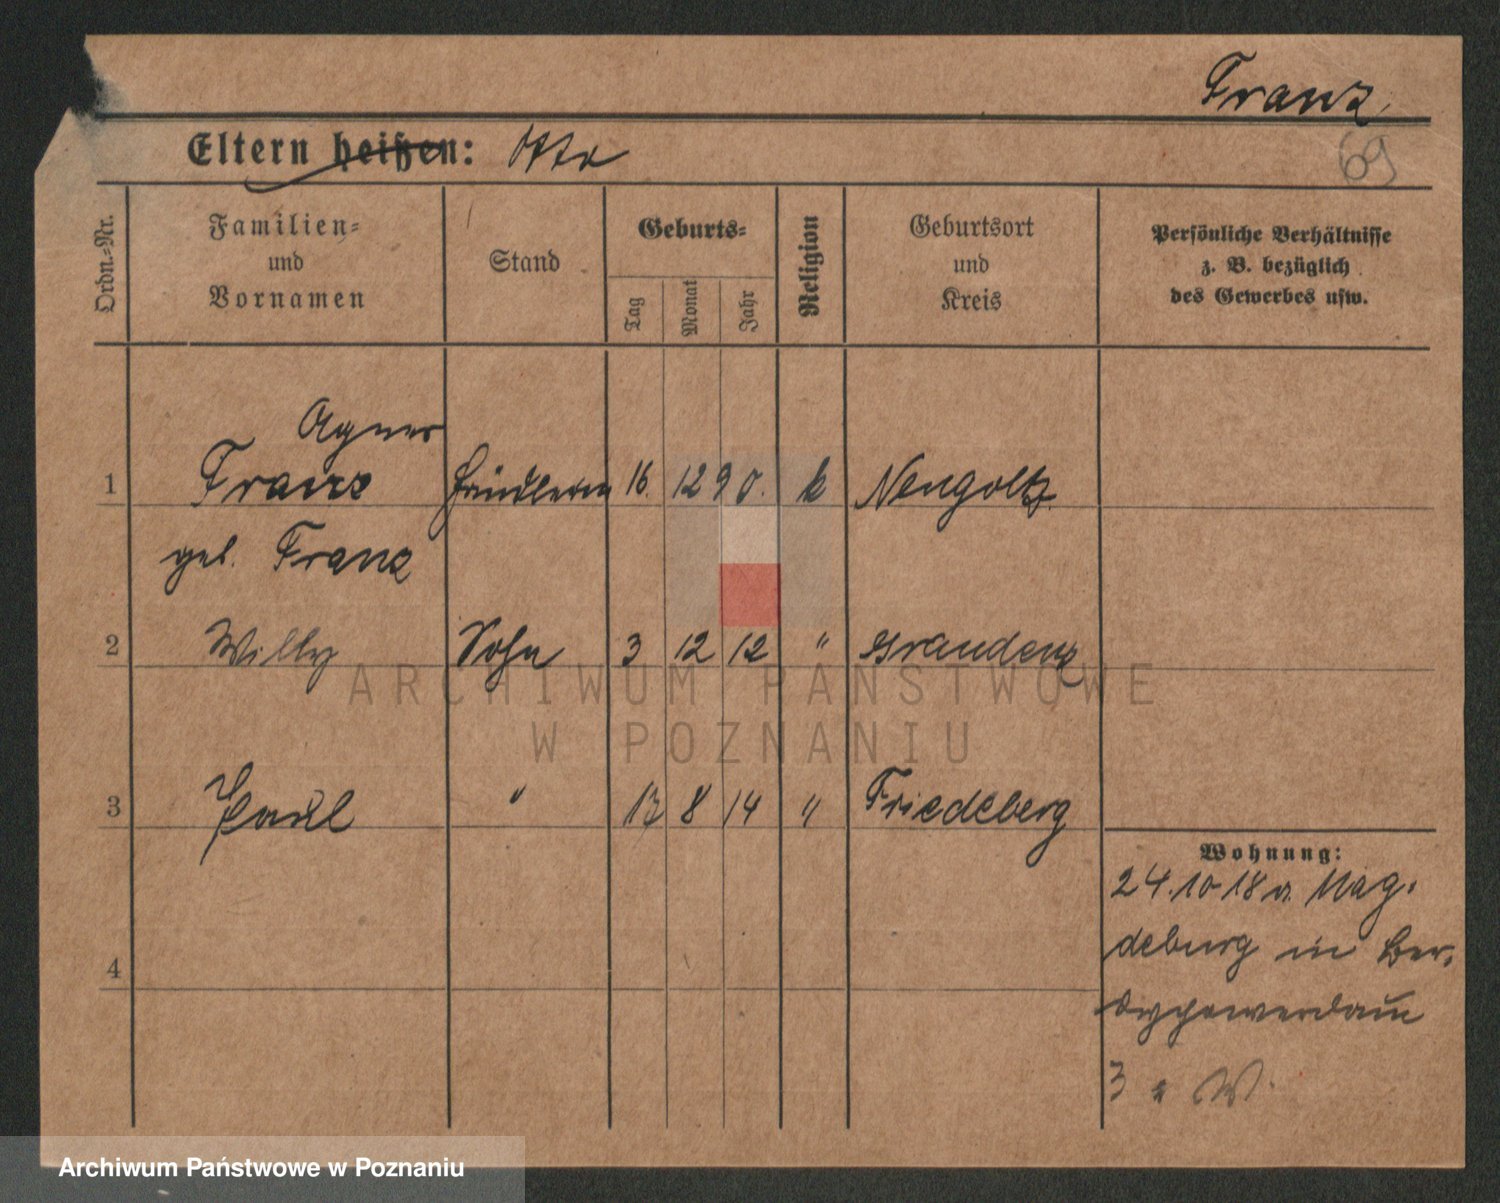 Franz
69
Eltern heißen: Otto
Ordn.-Nr.
Familien-
und
Vornamen
Stand
Geburts-
Tag
Monat
Jahr
Religion
Geburtsort
und
Kreis
Persönliche Verhältnisse
z. B. bezüglich
des Gewerbes usw.
Agnes
1 Franz Händlerin 16. 12 90. k Neugoltz
geb. Franz
2 Willy Sohn 3 12 12 " Graudenz
3 Paul " 8 14 " Friedeberg
Wohnung:
24.10 18 a. Mag-
deburg in Ber-
4
3 W.
ARCHIWUM PAŃSTWOWE
W POZNANIU
Archiwum Państwowe w Poznaniu